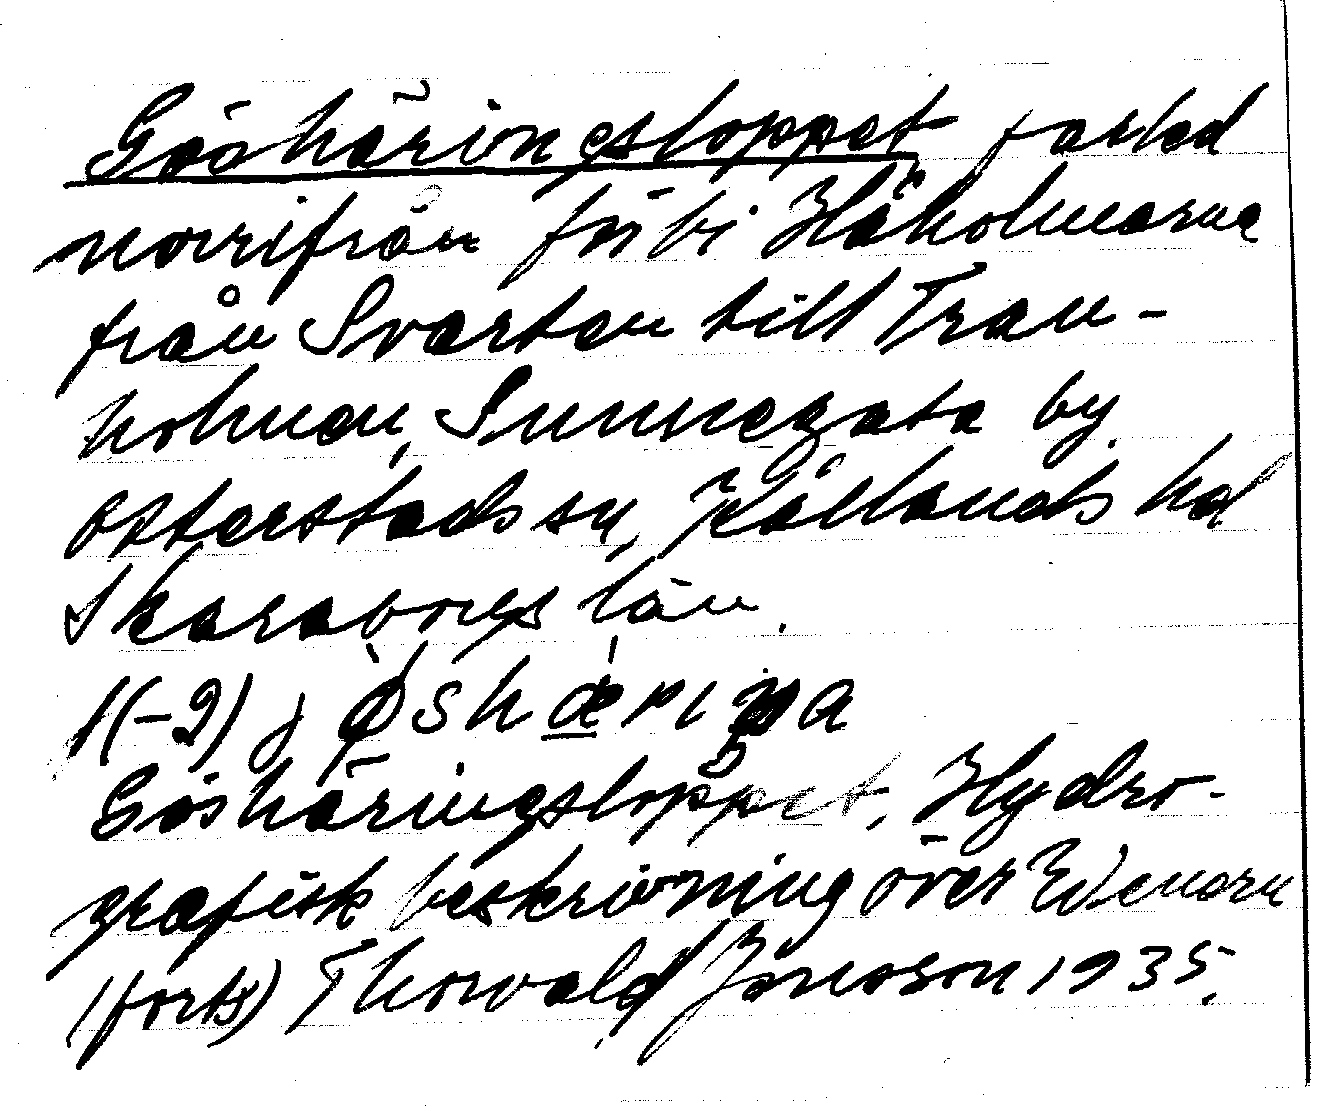 Göshäringsloppet farled
norrifrån förbi Håholmarna
från Svartan till Tran-
holmen, Sunnegata by
Österstads sn, Kållands hd
Skaraborgs län.
1(-2) jøshæriŋa
Göshäringsloppet, Hydro-
grafisk beskrivning över Wenern
(forts) Thorwald Jonoson 1935.